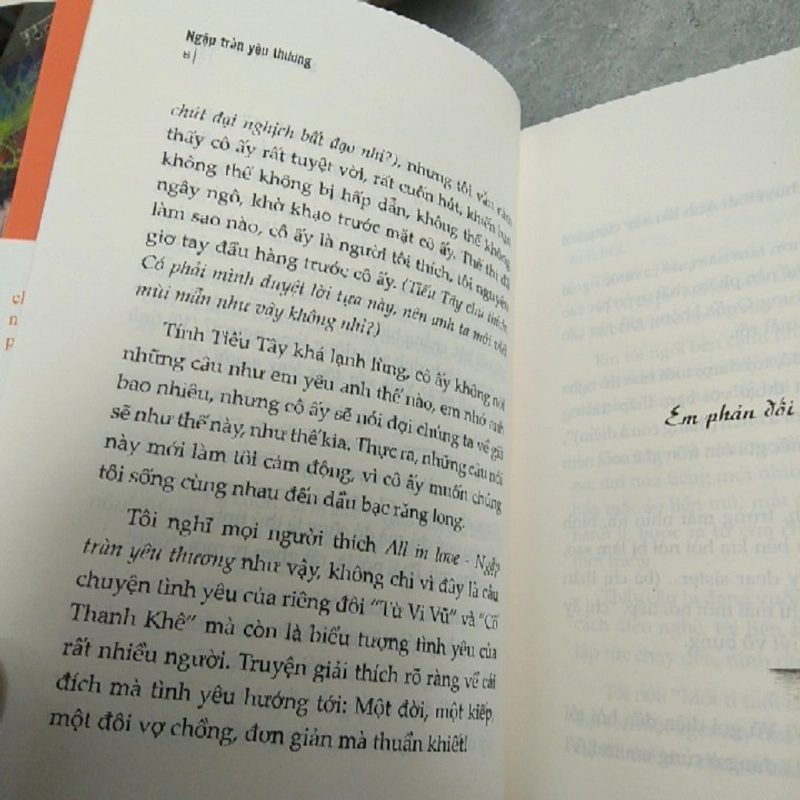 Ngập tràn yêu thương
8
chút đại nghịch bất đạo nhỉ?), nhưng tôi vẫn cảm
thấy cô ấy rất tuyệt vời, rất cuốn hút, khiến bạn
không thể không bị hấp dẫn, không thể không
ngây ngô, khờ khạo trước mặt cô ấy. Thế thì đã
làm sao nào, cô ấy là người tôi thích, tôi nguyện
giơ tay đầu hàng trước cô ấy. (Tiểu Tây chú thích:
Có phải mình duyệt lời tựa này, nên anh ta mới viết
mùi mẫn như vậy không nhỉ?)
Tính Tiểu Tây khá lạnh lùng, cô ấy không nói
những câu như em yêu anh thế nào, em nhớ anh
bao nhiêu, nhưng cô ấy sẽ nói đợi chúng ta về già
sẽ như thế này, như thế kia. Thực ra, những câu nói
này mới làm tôi cảm động, vì cô ấy muốn chúng
tôi sống cùng nhau đến đầu bạc răng long.
Tôi nghĩ mọi người thích All in love - Ngập
tràn yêu thương như vậy, không chỉ vì đây là câu
chuyện tình yêu của riêng đôi "Từ Vi Vũ" và "Cố
Thanh Khê" mà còn là biểu tượng tình yêu của
rất nhiều người. Truyện giải thích rõ ràng về cái
đích mà tình yêu hướng tới: Một đời, một kiếp,
một đôi vợ chồng, đơn giản mà thuần khiết!
Em phản đối